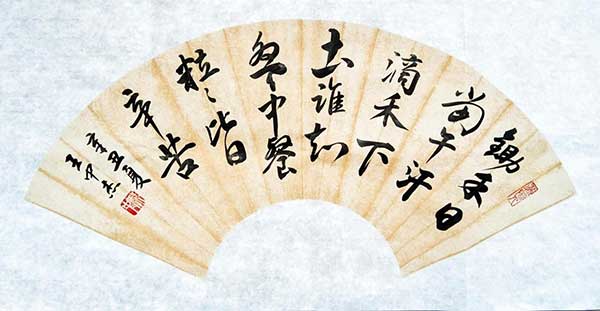 锄禾日
当午汗
滴禾下
土谁知
盘中餐
粒々皆
辛苦
辛丑夏
王中